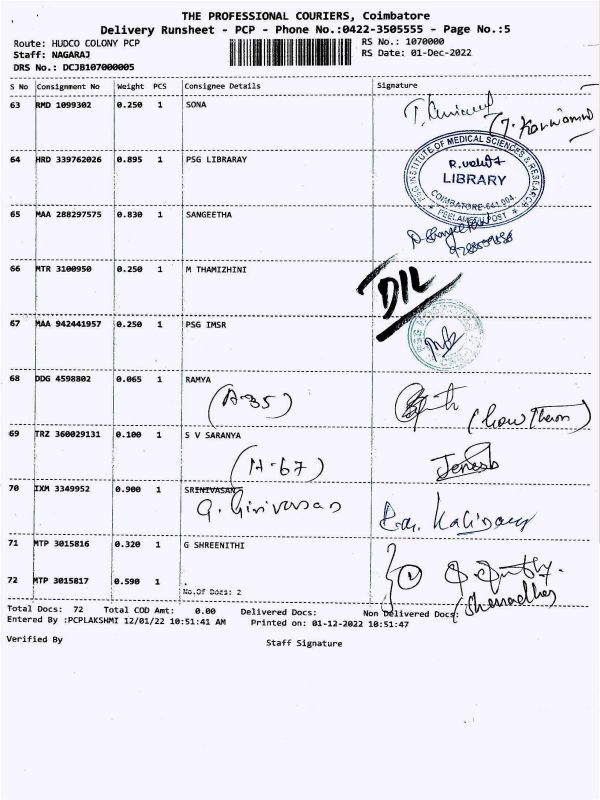 THE PROFESSIONAL COURIERS, Coimbatore
Delivery Runsheet - PCP - Phone No.:0422-3505555 - Page No.:5
Route: HUDCO COLONY PCP
RS No.: 1070000
Staff: NAGARAJ
RS Date: 01-Dec-2022
DRS No.: DCJB107000005
S No Consignment No Weight PCS Consignee Details Signature
63 RMD 1099302 0.250 1 SONA
64 HRD 339762026 0.895 1 PSG LIBRARAY
PSG INSTITUTE OF MEDICAL SCIENCES & RESEARCH
LIBRARY
COIMBATORE-641 004
PEELAMEDU POST
65 MAA 288297575 0.830 1 SANGEETHA
66 MTR 3100950 0.250 1 M THAMIZHINI
D/L
67 MAA 942441957 0.250 1 PSG IMSR
68 DDG 4598802 0.065 1 RAMYA
(A-35)
69 TRZ 360029131 0.100 1 S V SARANYA
(H-67)
70 IXM 3349952 0.900 1 SRINIVASAN
71 MTP 3015816 0.320 1 G SHREENITHI
72 MTP 3015817 0.590 1
No.Of Docs: 2
Total Docs: 72 Total COD Amt: 0.00 Delivered Docs: Non Delivered Docs:
Entered By :PCPLAKSHMI 12/01/22 10:51:41 AM Printed on: 01-12-2022 10:51:47
Verified By Staff Signature